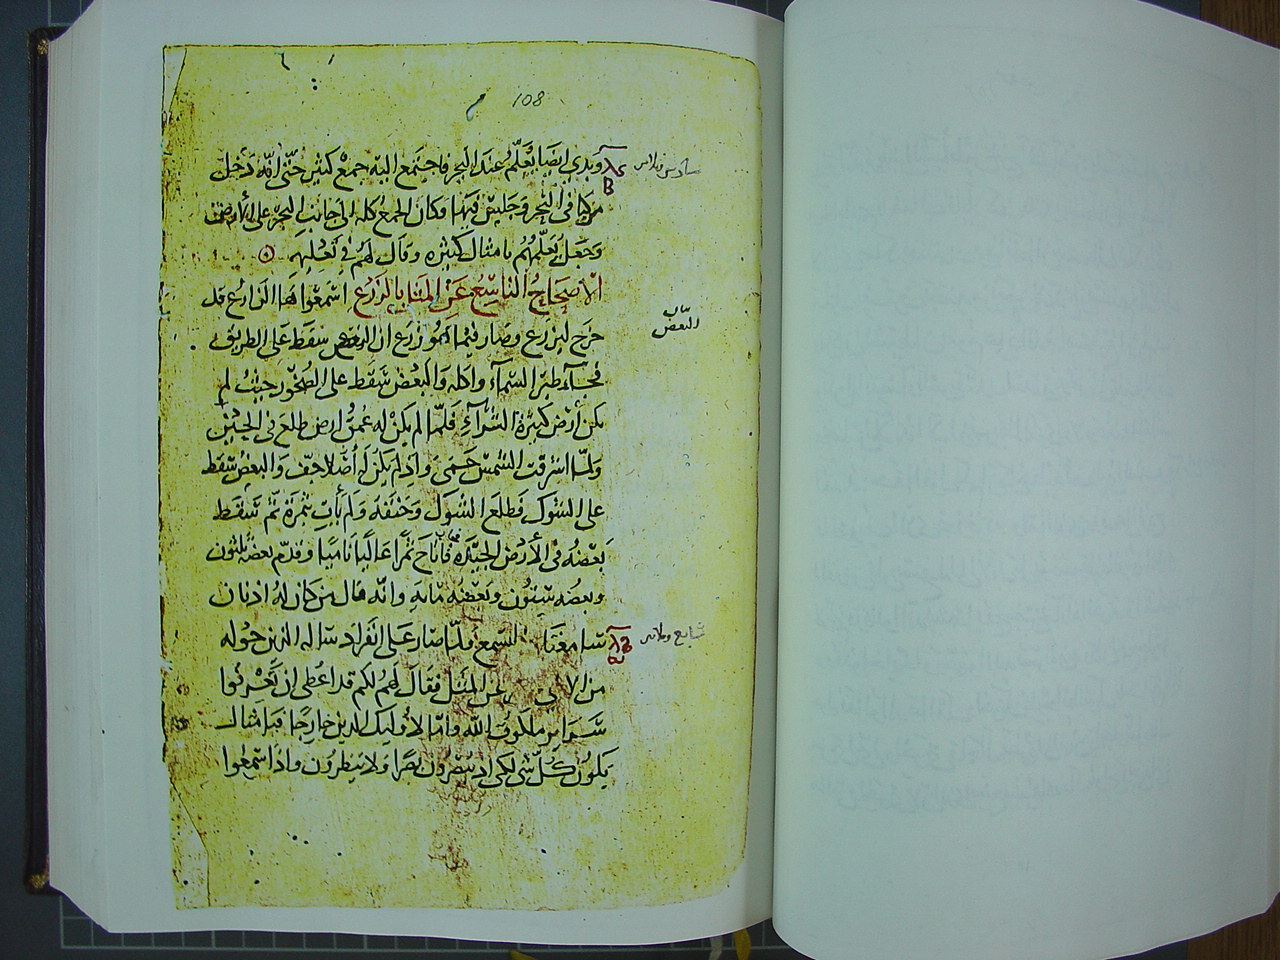 108
وبدي ايضا يُعلّم عند البحر فاجتمع اليه جمعٌ كثير حتّى انّه دخل
مركبا في البحر وجلس فيها وكان الجمع كله الى جانب البحر على الأرض
وجعل يُعلّمهُم بامثال كثيره وقال لهم في تعليمه
الاصحاحُ التاسِعُ عَنْ المَثَل بالزرع اسمعُوا ها الزارع قد
خرج ليزرع وصار فيما هُو زرع ان البعض سقط على الطريق
فجاء طير السّماء واكله والبعض سقط على الصّخور حيث لم
يكن أرض كثيرة الثراء فلمّا لم يكن له عمق ارض طلع في الحين
ولمّا اشرقت الشمس حمى واذ لم يكن له أصلا جفّ والبعض سقط
على الشوك فطلع الشوك وخنقه ولم يأت بثمرة ثم سقط
بعضُه في الأرض الجيّدة ثمرًا عاليًا ناميًا وقدّم بعضه ثلثون
وبعضه ستّون وبعضه مائة وانّه قال من كان له اذنان
سامعتا السمع فلمّا صار على انفراد ساله الذين حوله
من الا عن المثل فقال لهم لكم قد اعطى ان تعرفوا
سرائر ملكوت الله وامّا لأوليك الذين خارجًا فبامثال
يكون كلّ شي لكي اذ ينظرون نظرًا ولا ينظرون واذا سمعوا
سادس وثلاثين
باب
البعض
سابع وثلاثين